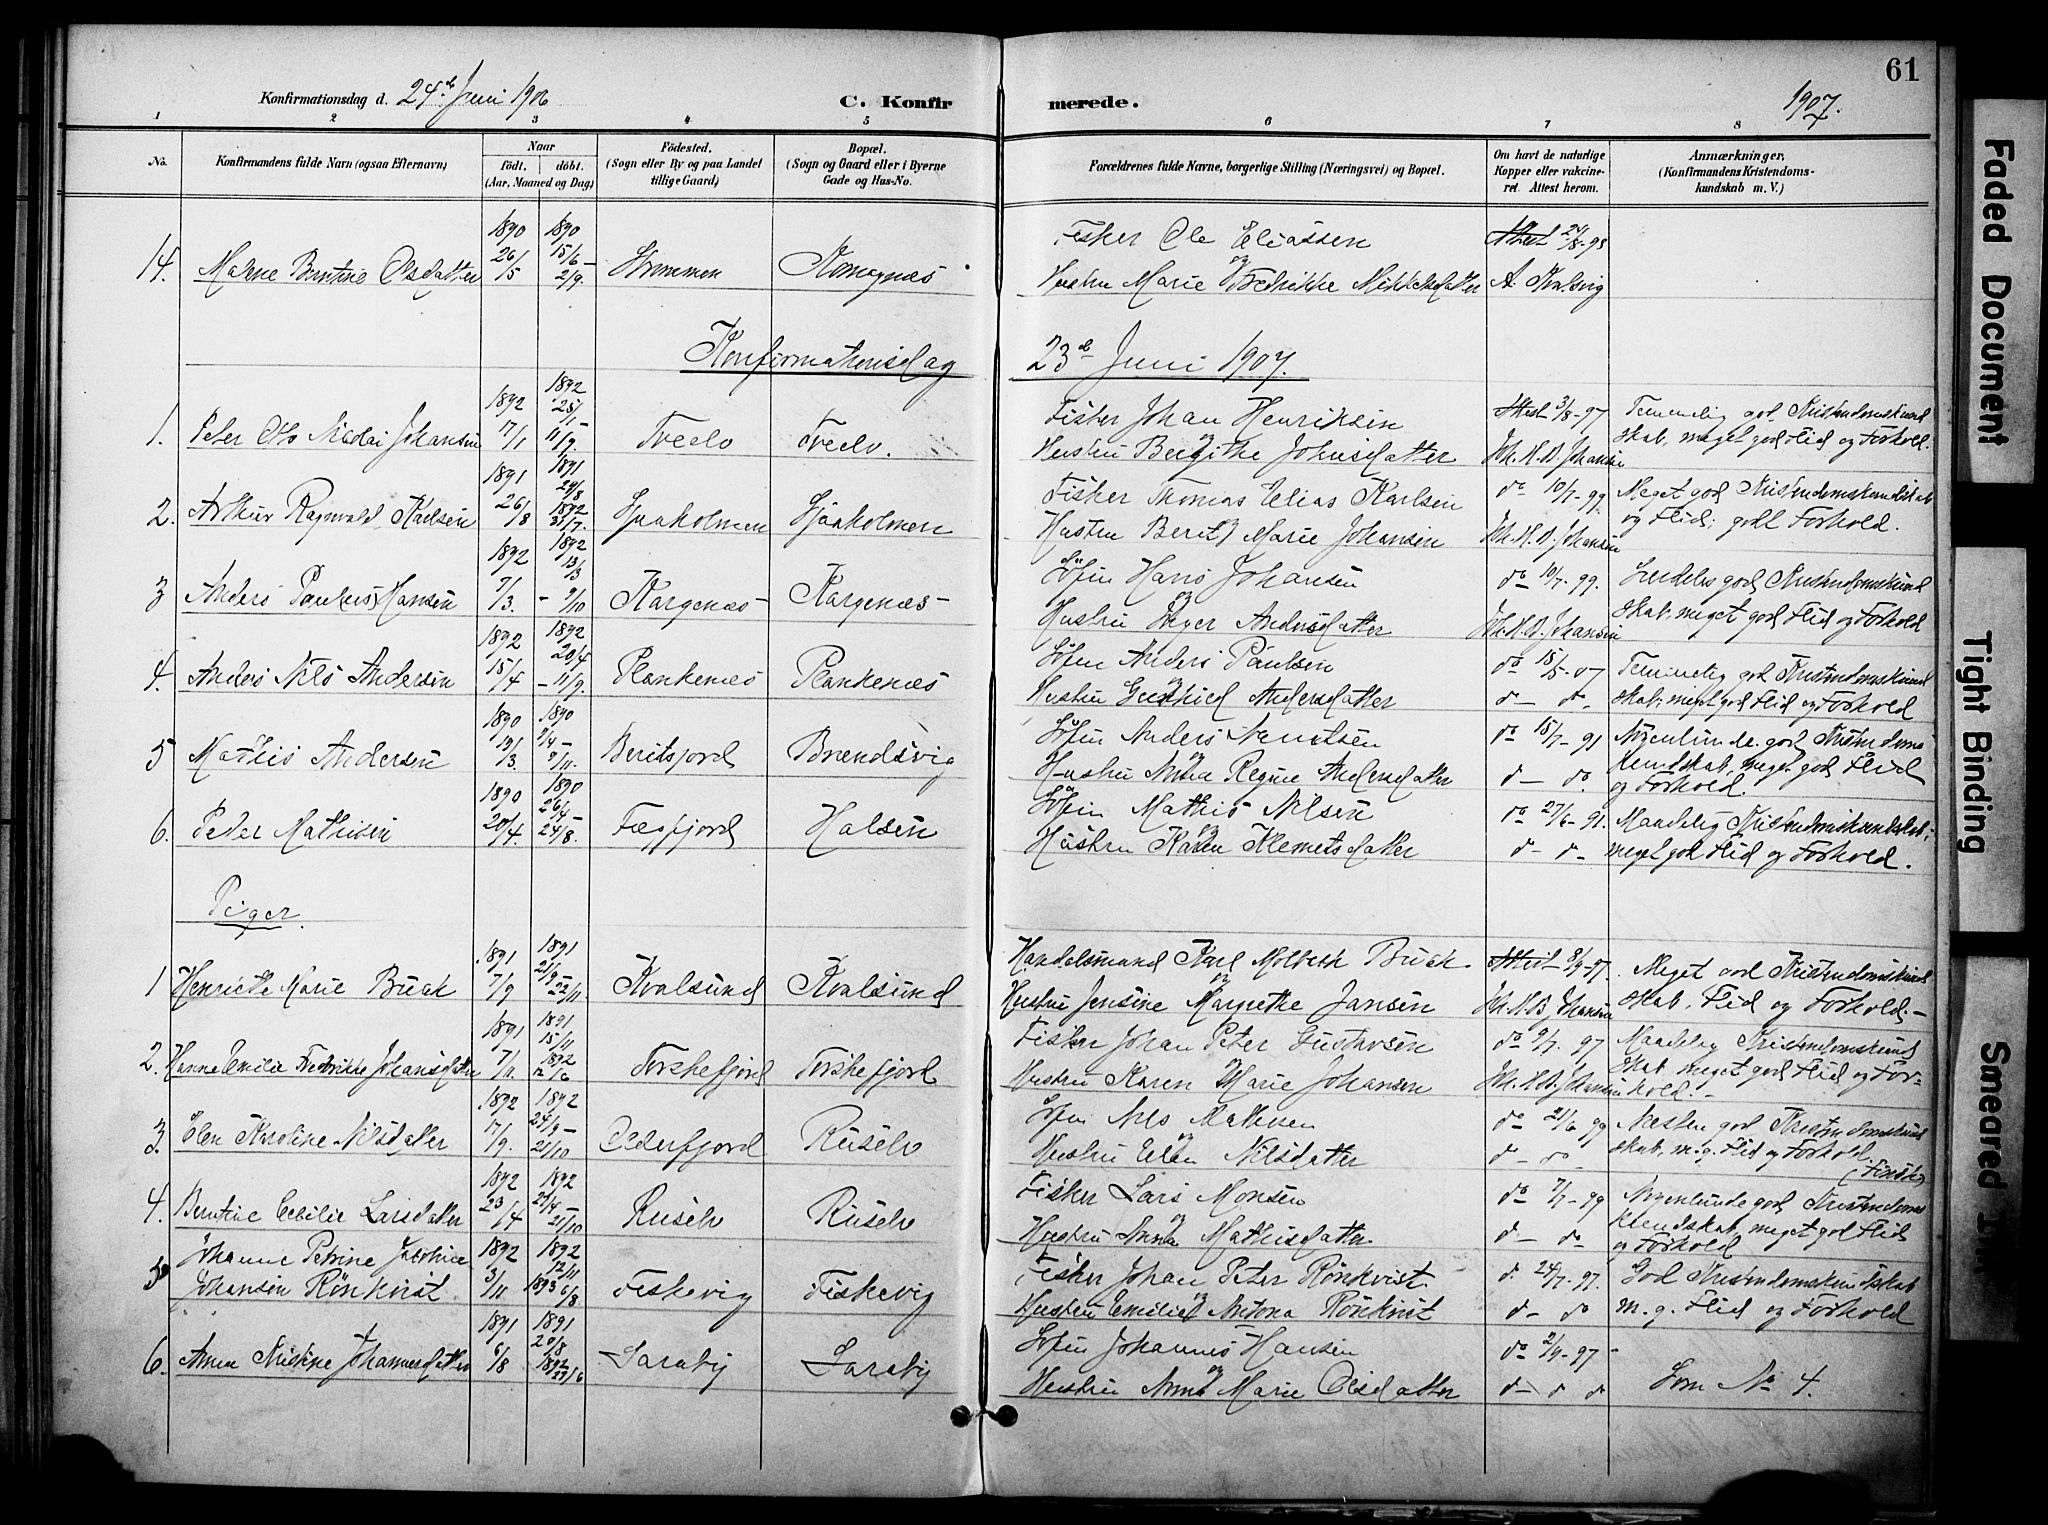 61
Konfirmationsdag d. 24de Juni 1906 C. Konfirmerede. 1907.
1 2 3 4 5 6 7 8
No. Konfirmandens fulde Navn (ogsaa Efternavn) Naar födt. döbt. (Aar, Maaned og Dag) Födested. (Sogn eller By og paa Landet tillige Gaard) Bopæl. (Sogn og Gaard eller i Byerne Gade og Hus-No. Forældrenes fulde Navne, borgerlige Stilling (Næringsvei) og Bopæl. Om havt de naturlige Kopper eller vakcineret. Attest herom. Anmærkninger, (Konfirmandens Kristendomskundskab m. V.)
1890 1890 Fisker Ole Eliassen Attest 24/8-98
14. Malene Berntine Olsdatter 26/5 15/6 - 2/9. Strømmen Komagnæs og Hustru Marie Fredrikke Mikkelsdatter
Konfirmationsdag 23de Juni 1907.
1892 1892 25/1 - Fisker Johan Henriksen Attest 3/8-97 Temmelig god Kristendomskund
1. Peter Otto Nicolai Johansen 17/1 11/9. Torelv Torelv. Hustru Bergithe Johnsdatter Joh. H. D. Johansen skab, meget god Flid og Forhold.
1891 1891 24/8 Fisker Thomas Elias Karlsen do 10/7-99 Meget god Kristendomskundskab
2. Arthur Ragnvald Karlsen 26/8 1892 31/7. Sjaaholmen Sjaaholmen Hustru Berit Marie Johansen Joh. H. D. Johansen og Flid; godt Forhold.
1892 1892 13/3 Søfin Hans Johansen do 10/7-99. Særdeles god Kristendomskund
3 Anders Paulus Hansen 7/3. - 9/10 Kargenæs Kargenæs Hustru Inger Andersdatter Joh. H. D. Johansen skab, meget god Flid og Forhold
1892 1892 20/4 Søfin Anders Paulsen do 15/5-07 Temmelig god Kristendomskund
4. Anders Nils Andersen 15/4 - 11/9. Plankenæs Plankenæs Hustru Andersdatter d - do - skab, meget god Flid og Forhold
1890 1890 Søfin Anders do 15/7-91 Nogenlunde god Kristendoms
5 Mathis Andersen 19/3. 9/4 - 9/11. Beritsfjord Brændsvig Hustru Anna Regine Andersdatter d - do. kundskab, meget god Flid og Forhold.
1890 1890 26/4 - Søfin Mathis Nilsen do 27/6-91. Maadelig Kristendomskundskab;
6. Peder Mathisen 20/4. 24/8. Fægfjord Halsen Hustru Karen Klemetsdatter d - do - meget god Flid og Forhold.
Piger
1891 1891 21/9 Handelsmand Karl Molbech Buck Attest 8/9-97. Meget god Kristendomskund
1 Henriette Marie Buck 7/9 22/11. Kvalsund Kvalsund Hustru Jensine Margrethe Jansen Joh. H. D. Johansen skab, Flid og Forhold.-
1891 1891 15/11 Fisker Johan Peter Gustavsen do 9/7. 97 Maadelig Kristendomskund
2. Hanna Emilie Fredrikke Johansdatter 7/11. 1892 12/6 Torskefjord Torskefjord Hustru Karen Marie Johansen Joh. H. D. Johansen skab, meget god Flid og Forhold. -
1892 1892 24/9 - Søfin Nils Mathisen do 21/6 99 Næsten god Kristendomskund
3. Elen Karoline Nilsdatter 17/9. 21/10 Olderfjord Ruselv Hustru Elen Nilsdatter d - do skab, m.g. Flid og Forhold. (Finsk)
1892 1892 Fisker Lars Monsen do 7/7-99 Nogenlunde god Kristendoms
4. Berntine Cecilie Larsdatter 23/4 29/4 - 21/10 Ruselv Ruselv Hustru Anna Mathisdatter d - do kundskab, meget god Flid og Forhold
Johanne Petrine Jakobine 1892 1892 12/11 Fisker Johan Peter Rönkvist. d. 24/7-97. God Kristendomskundskab
5 Johansen Rönkvist 3/11 1893 6/8. Fiskevig Fiskevig Hustru Emilie Antona Rönkvist d - do m.g. Flid og Forhold
1891 1891 20/8 Søfin Johannes Hansen do 2/9-97 -
6. Anna Kristine Johannesdatter 6/8 1892 27/6 Saraby Saraby Hustru Anna Marie Olsdatter d - d do Som No 4.
Faded Document
Tight Binding
Smeared Ink